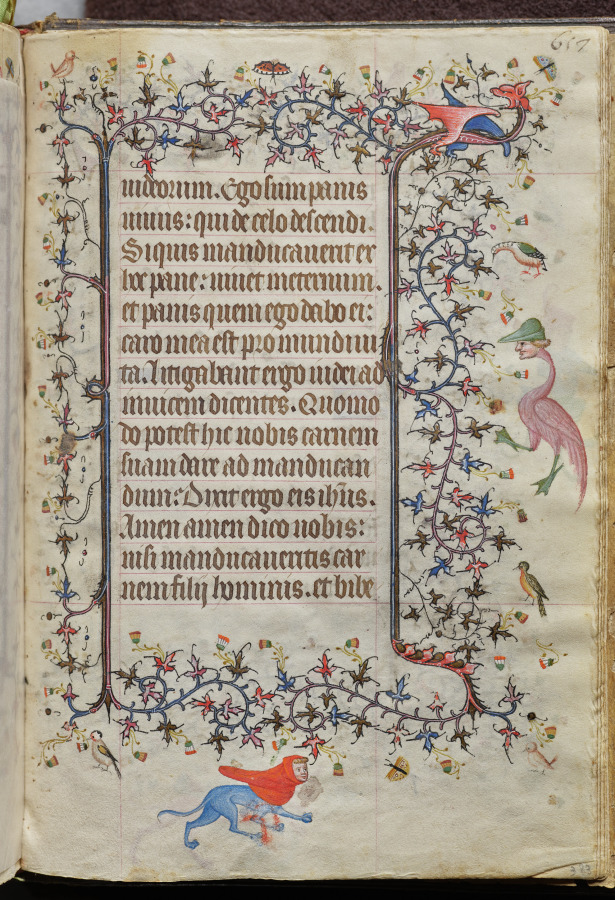 617
iudeorum. Ego sum panis
uiuus: qui de celo descendi.
Si quis manducauerit ex
hoc pane: uiuet in eternum.
et panis quem ego dabo est:
caro mea est pro mundi ui
ta. Litigabant ergo iudei ad
inuicem dicentes. Quomo
do potest hic nobis carnem
suam dare ad manducan
dum: Dixit ergo eis ihus.
Amen amen dico uobis:
nisi manducaueritis car
nem filij hominis. et bibe